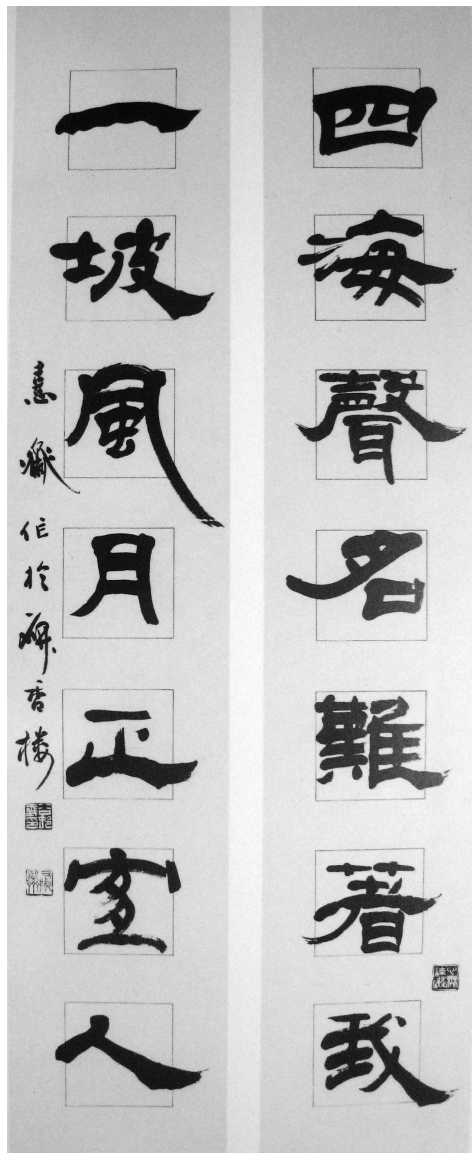 四海聲名難著我
一坡風月正宜人
作於 香楼